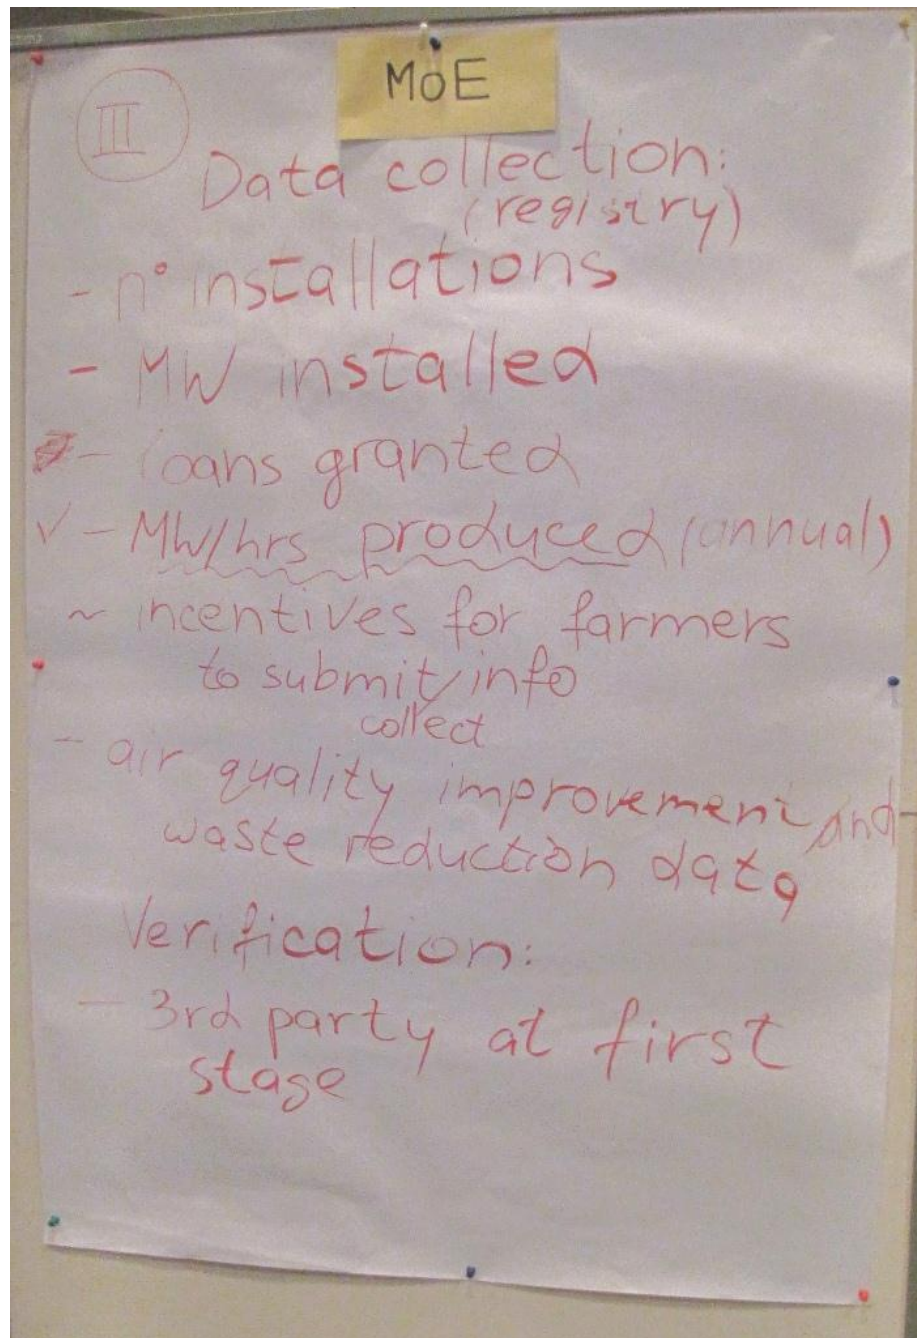 MOE
III
Data collection:
(registry)
- n° installations
- MW installed
- loans granted
✓ - MW/hrs produced (annual)
~ incentives for farmers
to submit/info
collect
- air quality improvement and
waste reduction data
Verification:
- 3rd party at first
stage